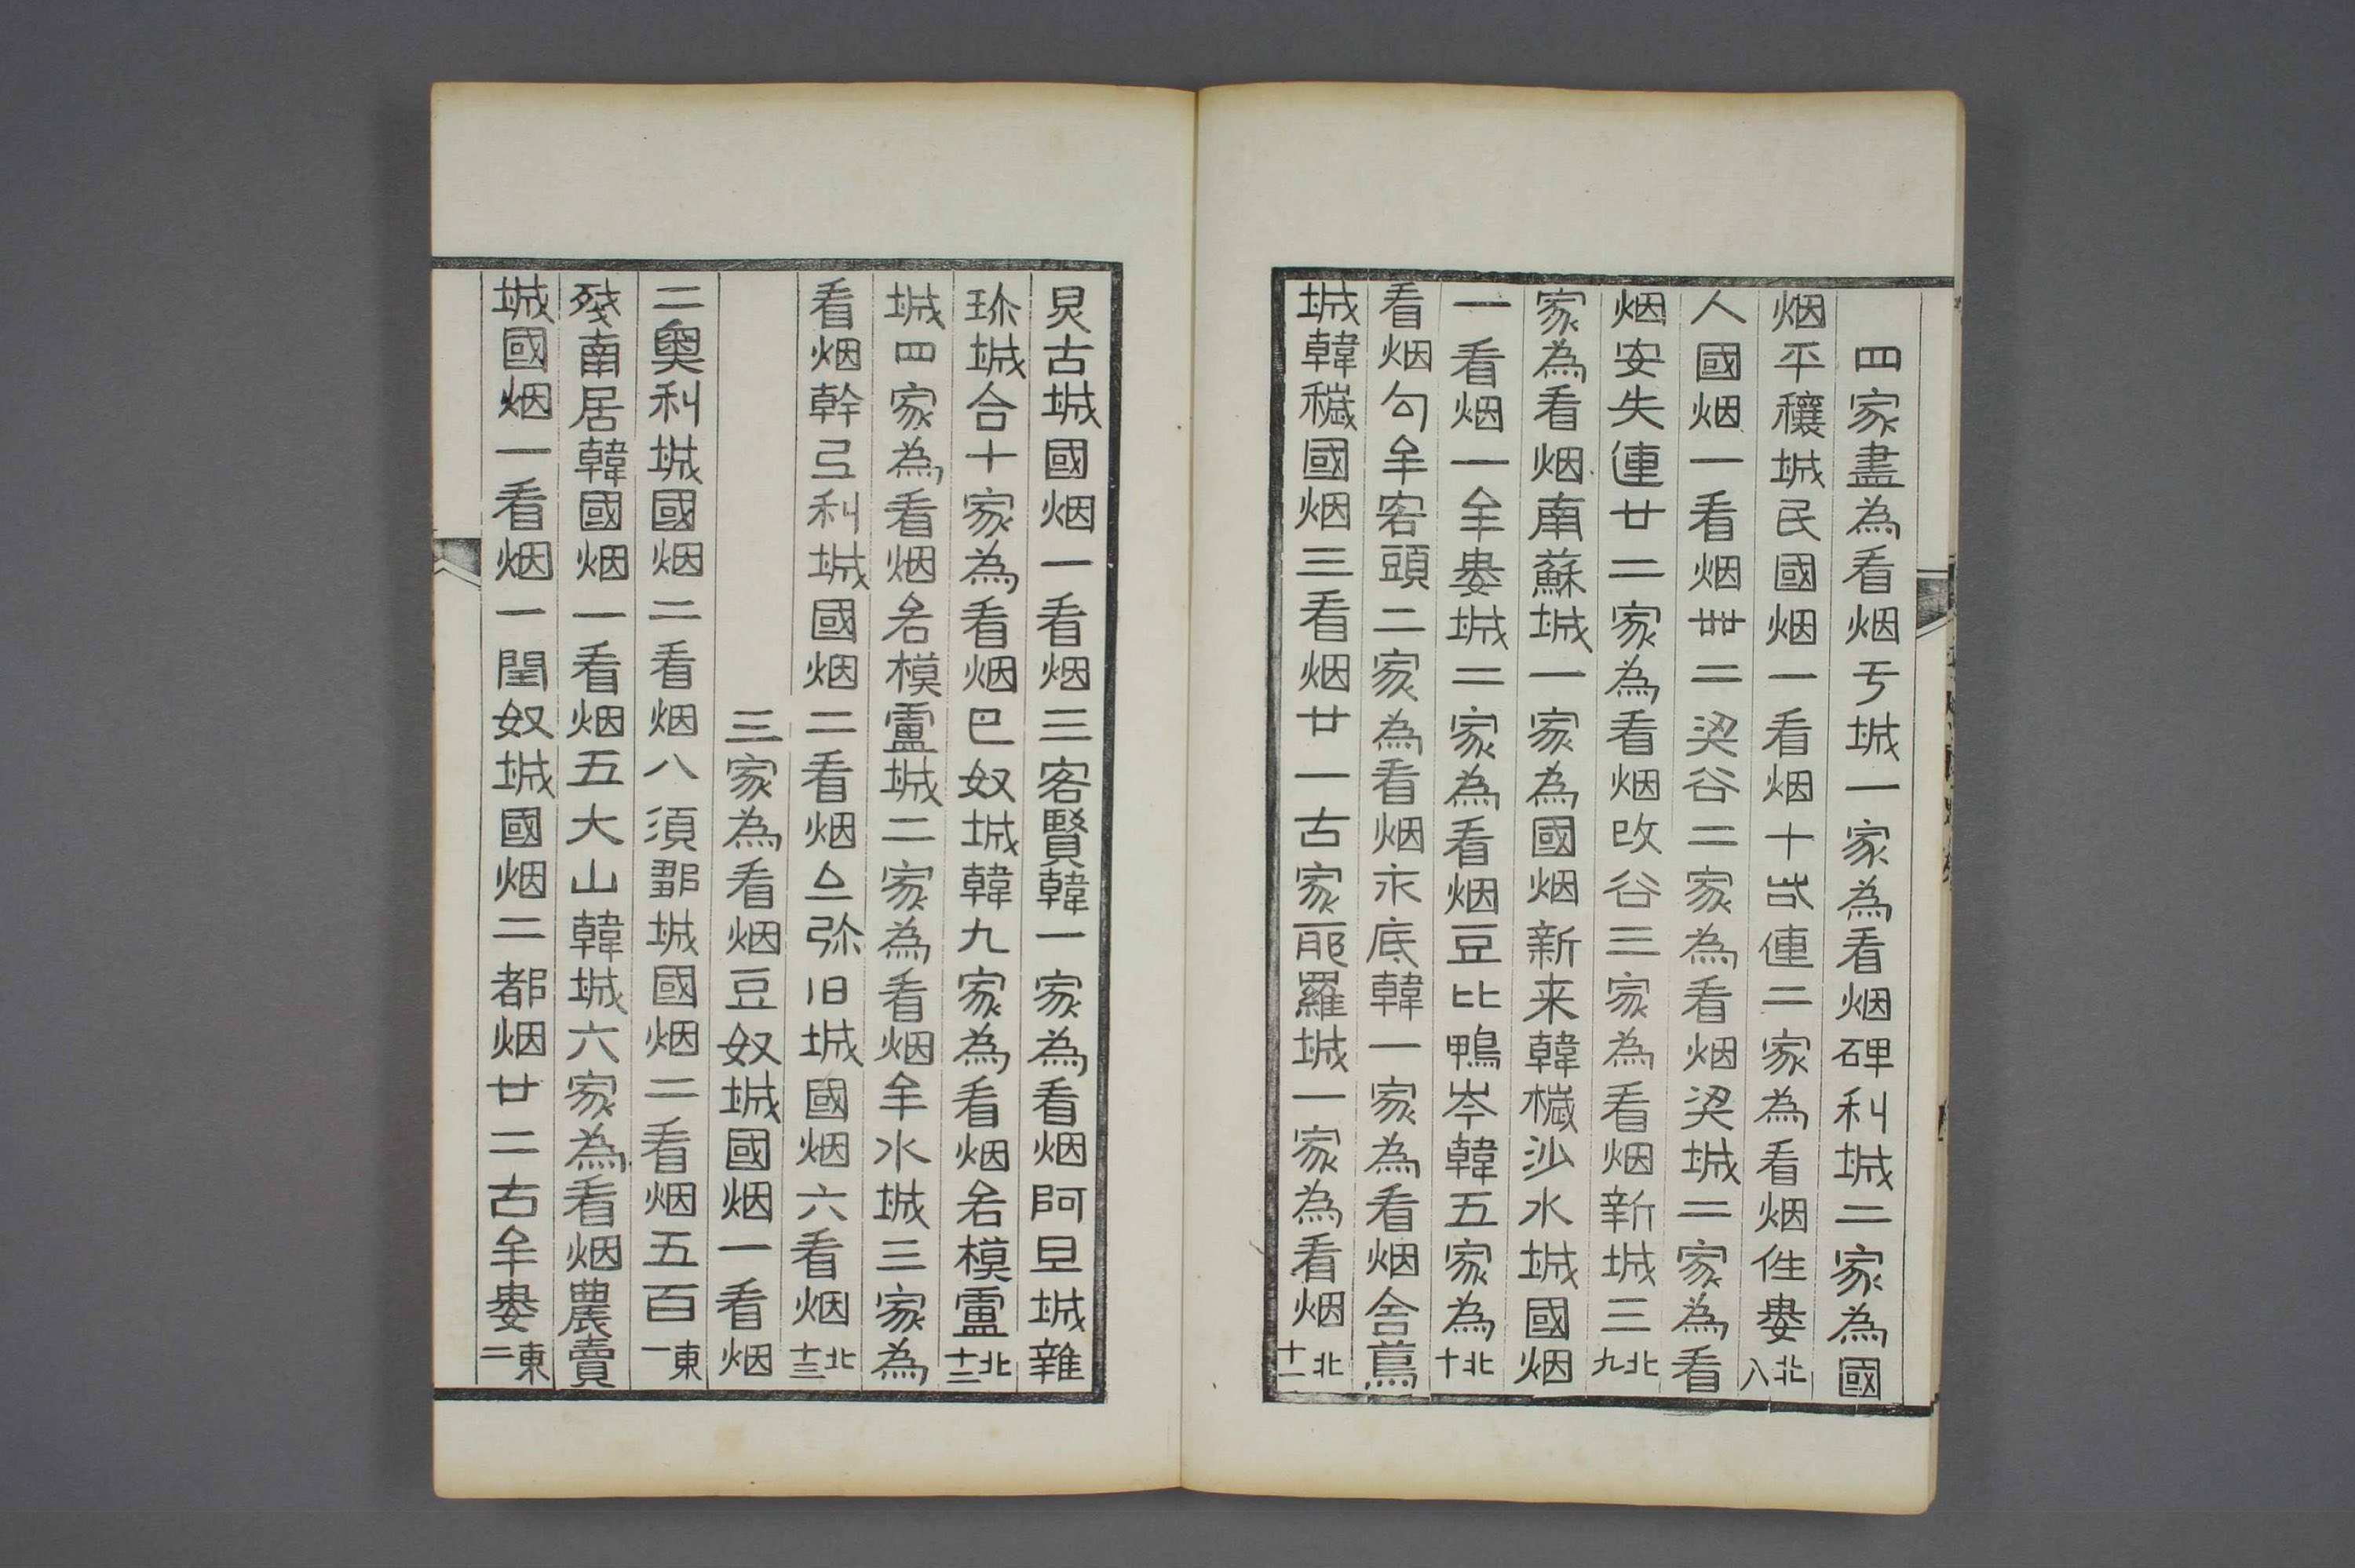 四家盡為看烟亐城一家為看烟碑利城二家為國
烟平穰城民國烟一看烟十訾連二家為看烟住婁北八
人國烟一看烟卌二梁谷二家為看烟梁城二家為看
烟安失連廿二家為看烟改谷三家為看烟新城三北九
家為看烟南蘇城一家為國烟新来韓穢沙水城國烟
一看烟一牟婁城二家為看烟豆比鴨岑韓五家為北十
看烟勾牟客頭二家為看烟永底韓一家為看烟舍蔦
城韓穢國烟三看烟廿一古家耶羅城一家為看烟北十一
炅古城國烟一看烟三客賢韓一家為看烟阿旦城雜
珎城合十家為看烟巴奴城韓九家為看烟各模盧北十二
城四家為看烟各模盧城二家為看烟牟水城三家為
看烟幹弖利城國烟二看烟亼弥旧城國烟六看烟北十三
三家為看烟豆奴城國烟一看烟
二奥利城國烟二看烟八須鄒城國烟二看烟五百東一
殘南居韓國烟一看烟五大山韓城六家為看烟農賣
城國烟一看烟一閏奴城國烟二都烟廿二古牟婁東二